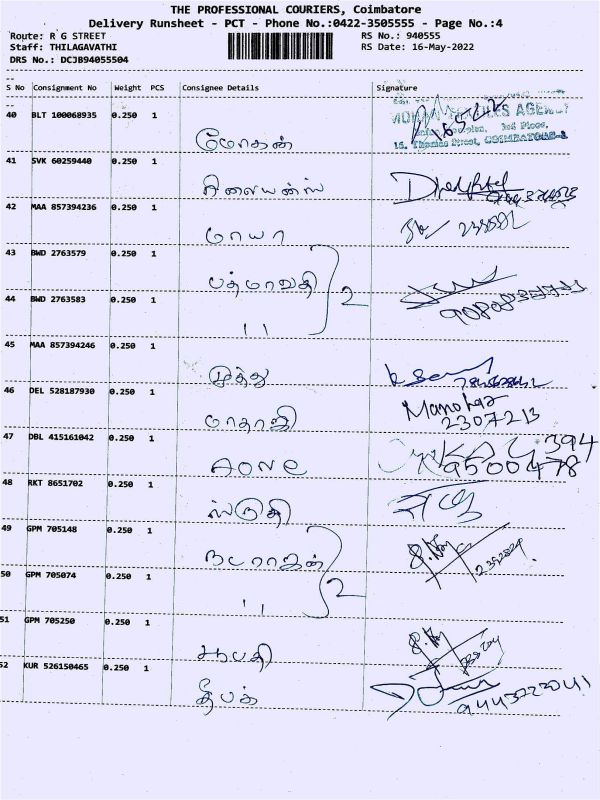 THE PROFESSIONAL COURIERS, Coimbatore
Delivery Runsheet - PCT - Phone No.:0422-3505555 - Page No.:4
Route: R G STREET RS No.: 940555
Staff: THILAGAVATHI RS Date: 16-May-2022
DRS No.: DCJB94055504
S No Consignment No Weight PCS Consignee Details Signature
40 BLT 100068935 0.250 1
மோகன்
15, Thomas Street, COIMBATORE-1
41 SVK 60259440 0.250 1
ரிலையன்ஸ்
42 MAA 857394236 0.250 1
மாயா
43 BWD 2763579 0.250 1
பத்மாவதி 2
44 BWD 2763583 0.250 1
11
45 MAA 857394246 0.250 1
முத்து
46 DEL 528187930 0.250 1
மாதாஜி Manohar
2307213
47 DBL 415161042 0.250 1
Aone 9500478 394
48 RKT 8651702 0.250 1
ஸ்ருதி
49 GPM 705148 0.250 1
நடராஜன் 2
50 GPM 705074 0.250 1
11
51 GPM 705250 0.250 1
52 KUR 526150465 0.250 1
தீபக் 9443223041